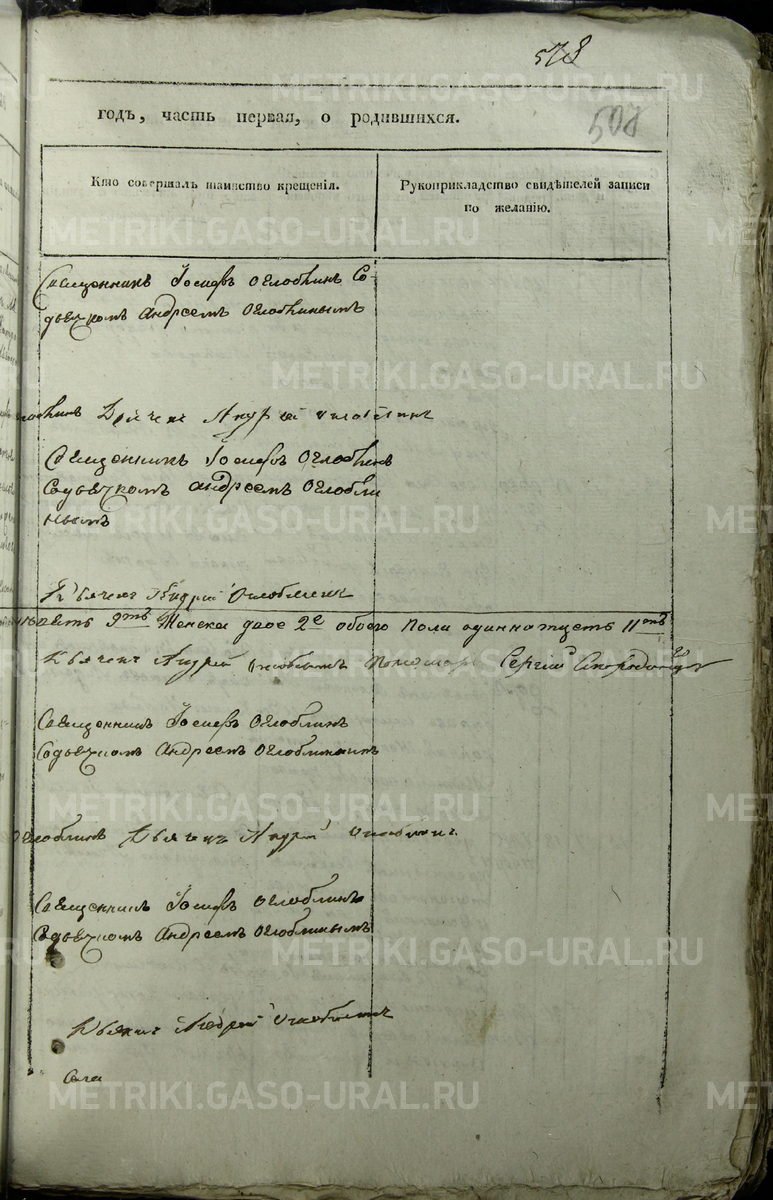 578
508
годъ, часть первая, о родившихся.
Кто совершалъ таинство крещенія.
Рукоприкладство свидѣтелей записи
по желанію.
Священникъ Іосифъ Оглоблинъ Со
дьячкомъ Андреемъ Оглоблинымъ
Дьячекъ Андрей Оглоблинъ
Священникъ Іосифъ Оглоблинъ
Содьячкомъ Андреемъ Оглобли
нымъ
Дьячекъ Андрей Оглоблинъ
9ть Женска двое 2е обоего Пола одиннатцеть 11ть
Дьячекъ Андрей Оглоблинъ Пономарь Сергий
Священникъ Іосифъ Оглоблинъ
Содьячкомъ Андреемъ Оглоблинымъ
Оглоблинъ Дьячекъ Андрей Оглоблинъ
Священникъ Іосифъ Оглоблинъ
Содьячкомъ Андреемъ Оглоблинымъ
Дьячекъ Андрей Оглоблинъ
METRIKI.GASO-URAL.RU